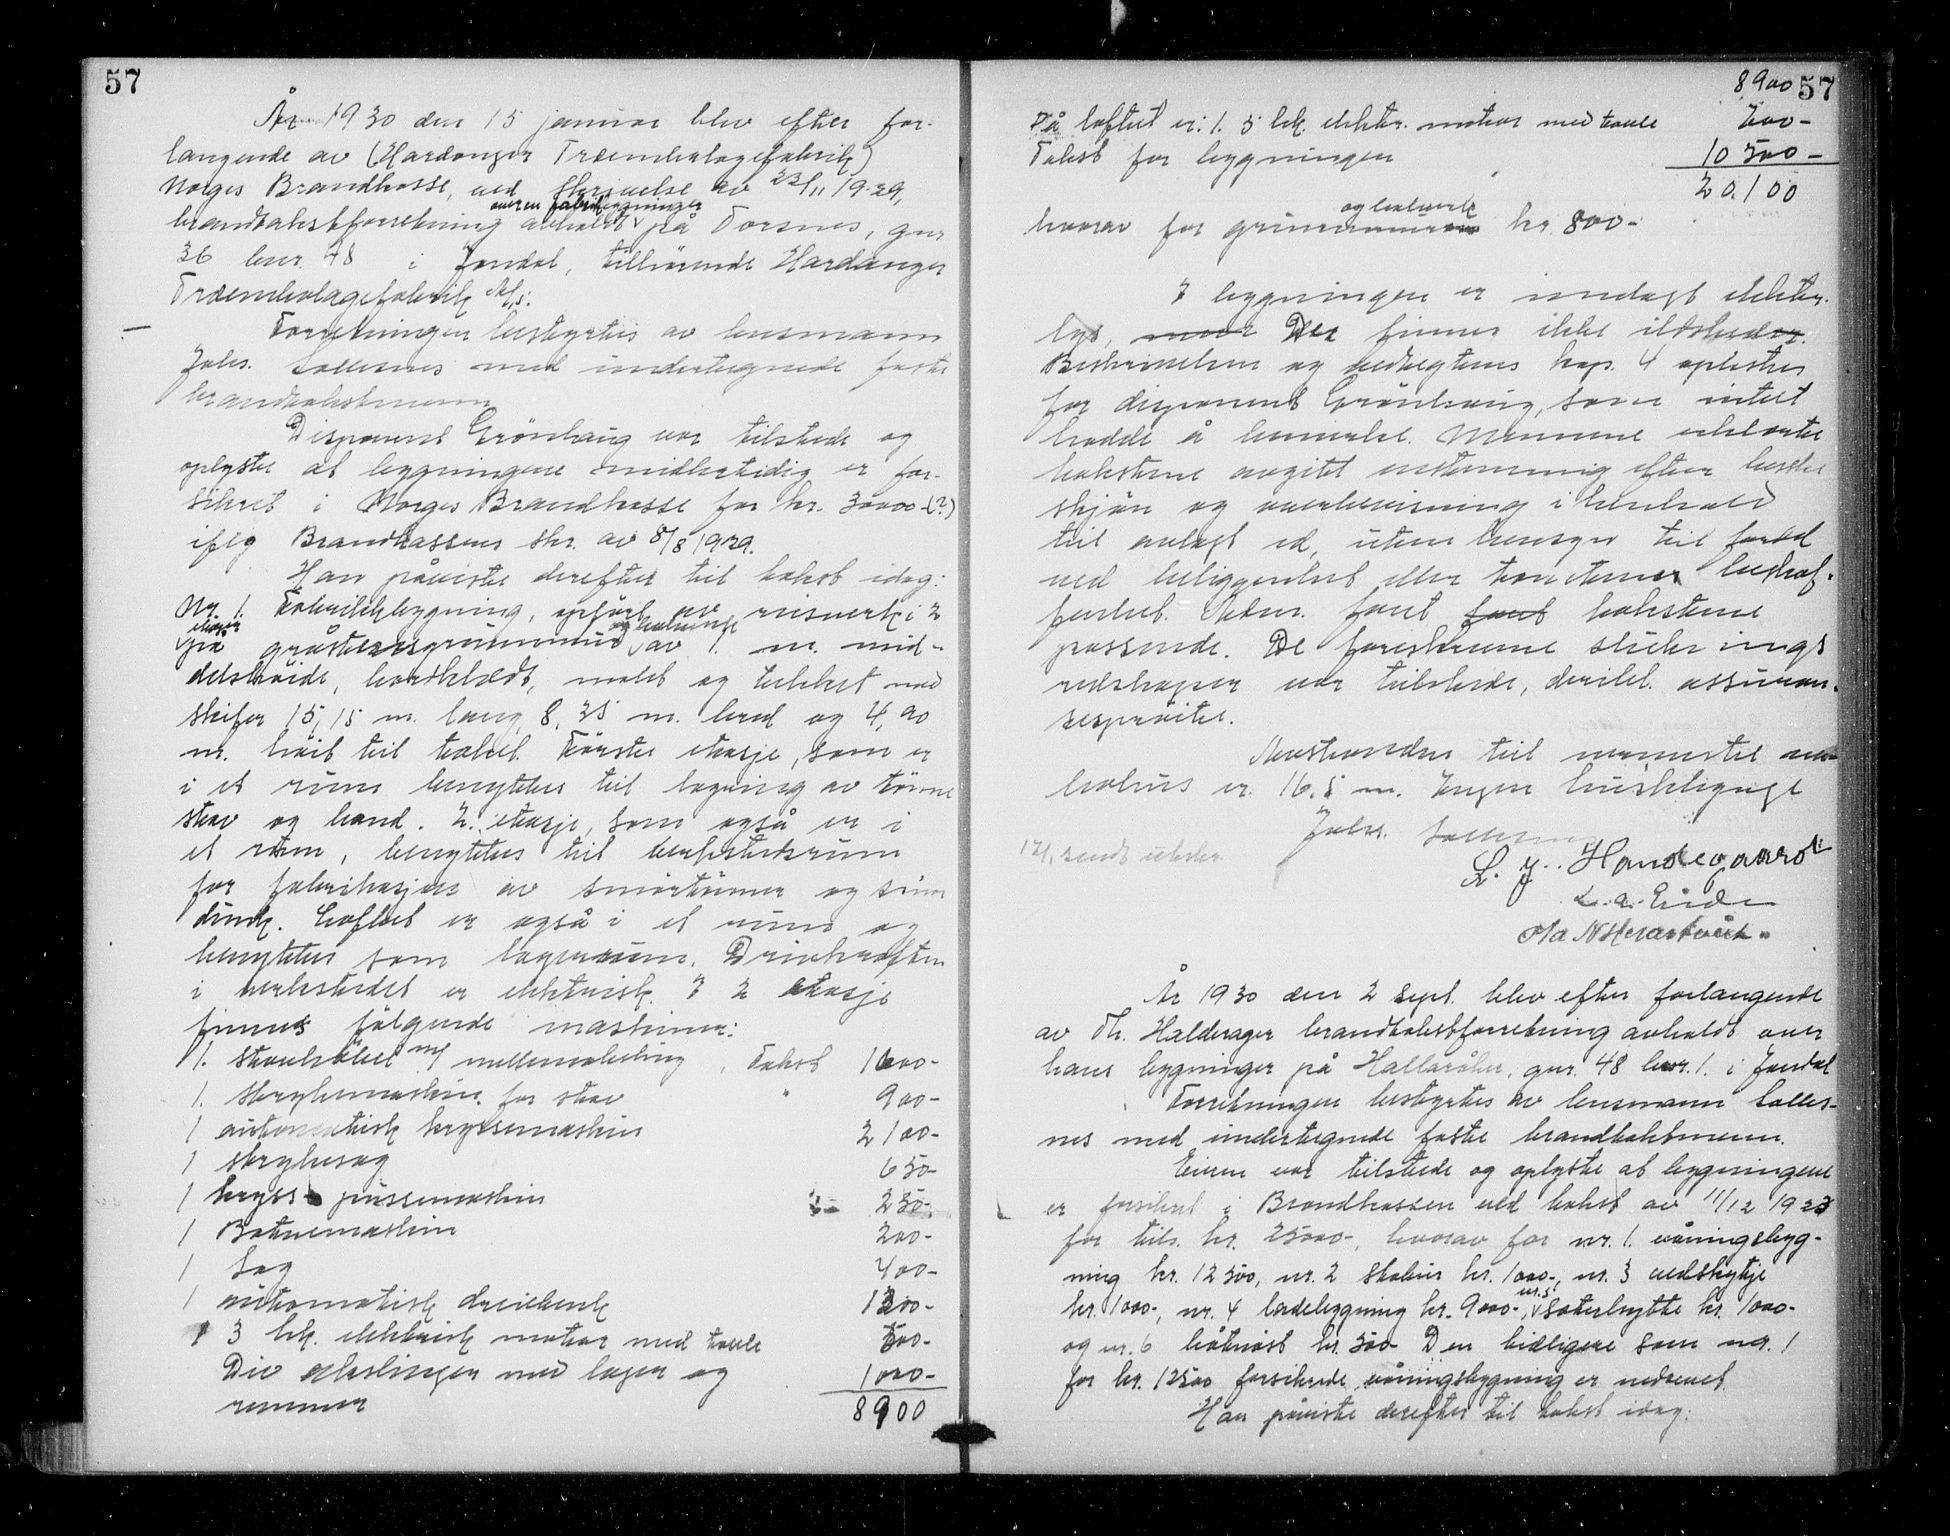 57
År 1930 den 15 januar blev efter for-
langende av (Hardanger Træemballagefabrik)
Norges Brandkasse, ved skrivelse av 22/11 1929,
over en fabrikbygninger
brandtakstforretning avholdt på Torsnes, gnr
36 bnr. 48 i Jondal, tilhørende Hardanger
Træemballagefabrik A/s.
Forretningen bestyrtes av lensmann
Johs. Sollesnes med undertegnede faste
brandtakstmenn
Disponent Grönhaug var tilstede og
oplyste at bygningene midlertidig er for-
sikret i Norges Brandkasse for kr. 30000-(?)
iflg Brandkassens skr. av 8/8 1929.
Han påviste derefter til takst idag:
Nr. 1. Fabrikkbygning, opført av reisverk i 2
etager
på gråstensgrunnmur og av 1. m. mid-
delshöide, bordklædt, malet og tekket med
skifer 15,15 m. lang, 8,35 m. bred og 4,90
m. höit til taket. Förste etasje, som er
i et rum benyttes til lagring av tönne
stav og band. 2. etasje, som også er i
et rum, benyttes til verkstedsrum
for fabrikasjon av smörtönner og
Loftet er også i et rum og
benyttes som lagerrum. Drivkraften
i verkstedet er elektrisk. I 2 etasje
finnes fölgende maskiner:
1. stavhövel m/ mellemakseling, Takst 1600-
1. strykemaskin for stav " 900-
1 automatisk krysemaskin 2100-
1 strykesag 650-
1 kryss- pussemaskin 250-
1 Botnemaskin 200-
1 Sag 400-
1 automatisk dreiebenk 1300-
1 3 hk. elektrisk motor med tavle 500-
Div akslinger med lager og 1000-
remmer 8900
8900 57
På loftet er: 1. 5 hk. elektr. motor med tavle 700-
Takst for bygningen 10500-
20.100
hvorav for grunnmuren kr. 800-
I bygningen er innlagt elektr.
lys, Der finnes ikke ildsteder.
Beskrivelsen og vedtegtenes kap. 4 oplestes
for disponent Grönhaug, som intet
hadde å bemerke. Mennene erklærte
takstene avgitt enstemmig efter beste
skjön og overbevisning i henhold
til avlagt ed, uten hensyn til fordel
ved beliggenhet eller bruk-
Adm. fant takstene
passende. De foreskrevne slukkings
redskaper var tilstede, deribl. assuran-
sesprøite.
Avstanden til nærmeste
er 16,5 m. Ingen
Johs. Sollesnes
17/1 sendt utskr.
L. J. Handegaard
L. A. Eide
Ola N Herastveit.
År 1930 den 2 sept. blev efter forlangende
av Th. Haldorager brandtakstforretning avholdt over
hans bygninger på Hallaråker, gnr. 48 bnr. 1. i Jondal
Forretningen bestyrtes av lensmann Solles-
nes med undertegnede faste brandtakstmenn.
Eieren var tilstede og oplyste at bygningene
er forsikret i Brandkassen ved takst av 11/12 1923
for tils. kr. 25000-, hvorav for nr. 1. våningsbyg-
ning kr. 12500, nr. 2 stabur kr. 1000-, nr. 3 vedskykje
nr. 5
kr. 1000-, nr. 4 ladebygning kr. 9000-, saterhytte kr. 1000-
og nr. 6 båtnöst kr. 500- Den tidligere som nr. 1
for kr. 12500 forsikrede våningsbygning er nedrevet
Han påviste derefter til takst idag: